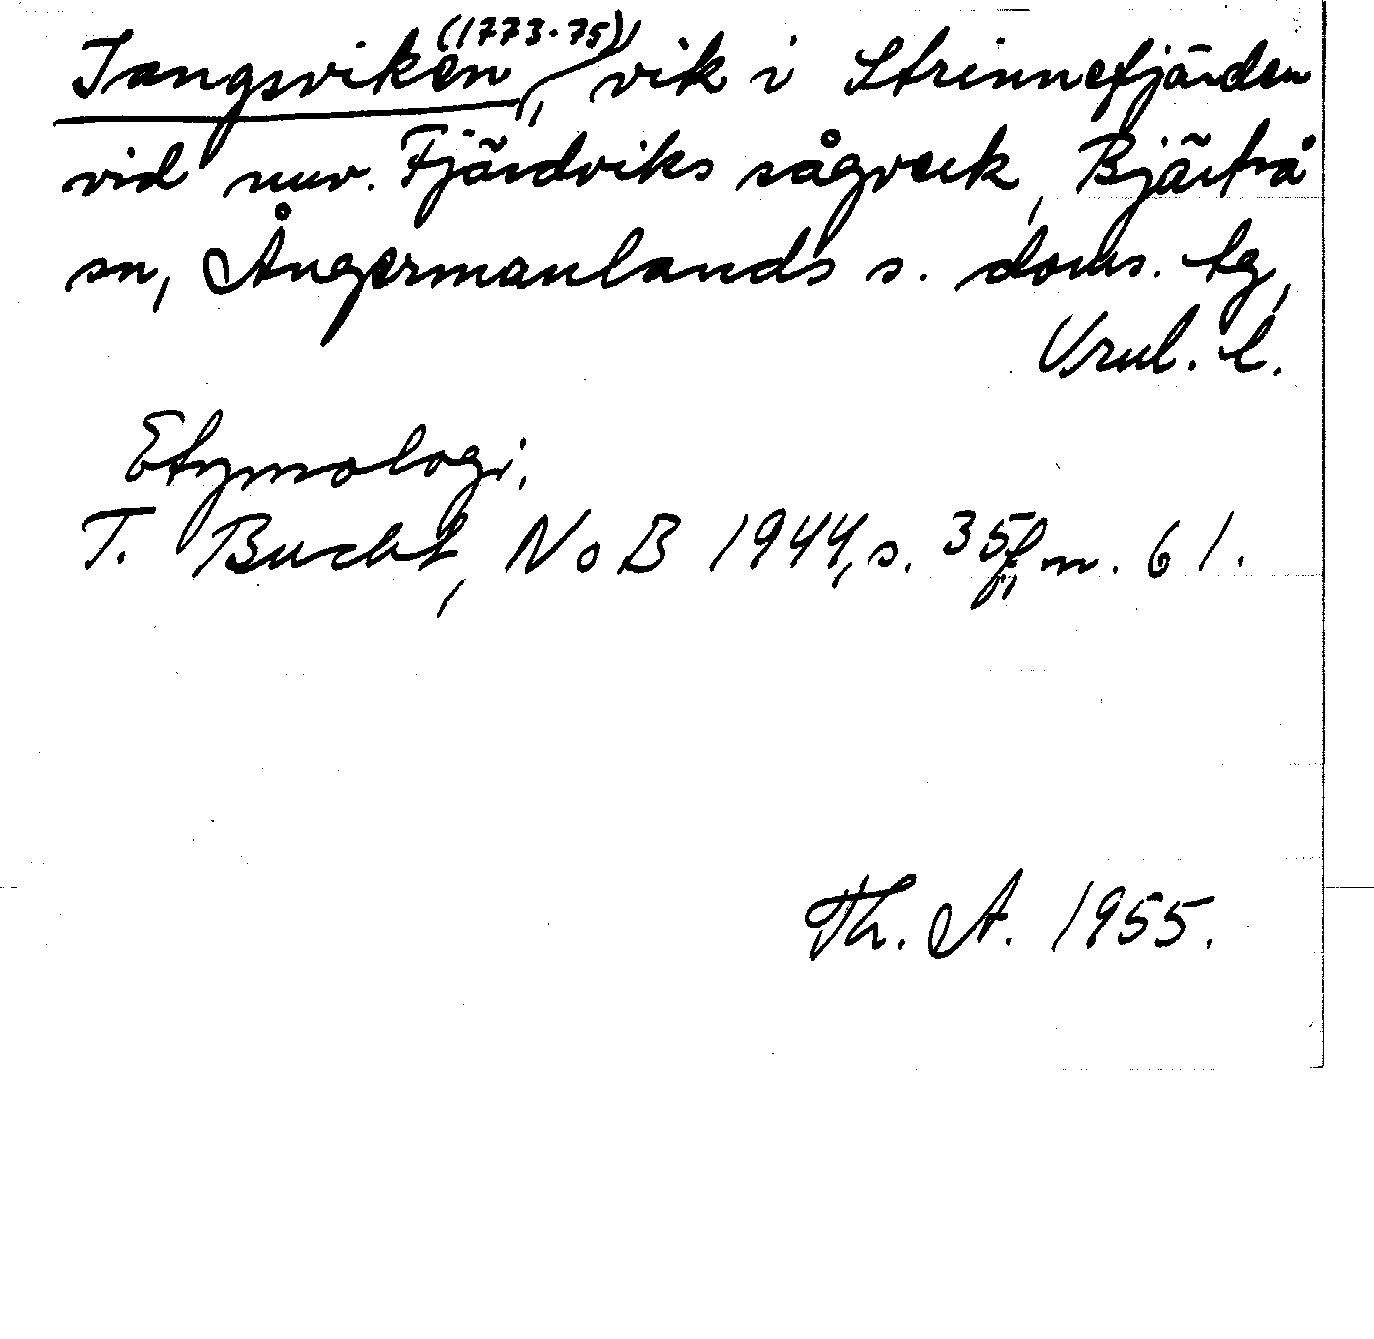 Tangsviken (1773-75), vik i Strinnefjärden
vid nuv. Fjärdviks sågverk, Bjärtrå
sn, Ångermanlands s. doms. tg,
Vrnl. l.
Etymologi.
T. Bucht, NoB 1944, s. 35f, m. 61.
Th. A. 1955.